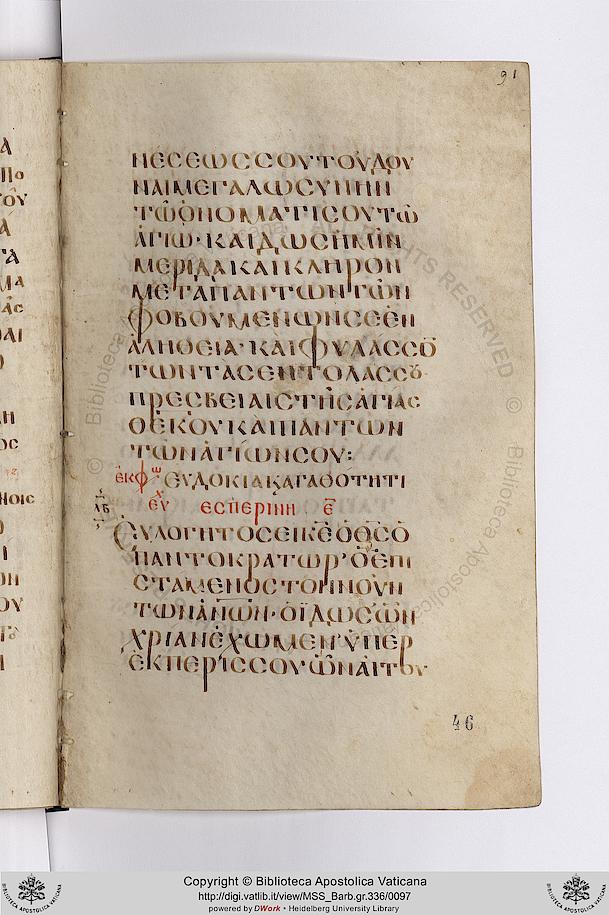 91
ΝΕϹΕΩϹϹΟΥΤΟΥΔΟΥ
ΝΑΙΜΕΓΑΛΩϹΥΝΗΝ
ΤΩΟΝΟΜΑΤΙϹΟΥΤΩ
ΑΓΙΩ·ΚΑΙΔΩϹΗΜΙΝ
ΜΕΡΙΔΑΚΑΙΚΛΗΡΟΝ
ΜΕΤΑΠΑΝΤΩΝΤΩΝ
ΦΟΒΟΥΜΕΝΩΝϹΕΕΝ
ΑΛΗΘΕΙΑ·ΚΑΙΦΥΛΑϹϹΟ
ΤΩΝΤΑϹΕΝΤΟΛΑϹϹΟΥ·
ΠΡΕϹΒΕΙΑΙϹΤΗϹΑΓΙΑϹ
ΘΕΚΟΥΚΑΙΠΑΝΤΩΝ
ΤΩΝΑΓΙΩΝϹΟΥ:
ΕΚΦΩ ΕΥΔΟΚΙΑΚΑΓΑΘΟΤΗΤΙ
ΕΥΧ ΕϹΠΕΡΙΝΗ Ε̅
ΕΥΛΟΓΗΤΟϹΕΙΚ̅Ε̅Ο̅Θ̅Ϲ̅Ο
ΠΑΝΤΟΚΡΑΤΩΡ·ΟΕΠΙ
ϹΤΑΜΕΝΟϹΤΟΝΝΟΥΝ
ΤΩΝΑΝ̅Ω̅Ν·ΟΪΔΩϹΩΝ
ΧΡΙΑΝΕΧΩΜΕΝΫΠΕΡ
ΕΚΠΕΡΙϹϹΟΥΩΝΑΙΤΟΥ
46
Copyright © Biblioteca Apostolica Vaticana
http://digi.vatlib.it/view/MSS_Barb.gr.336/0097
powered by DWork • Heidelberg University Library